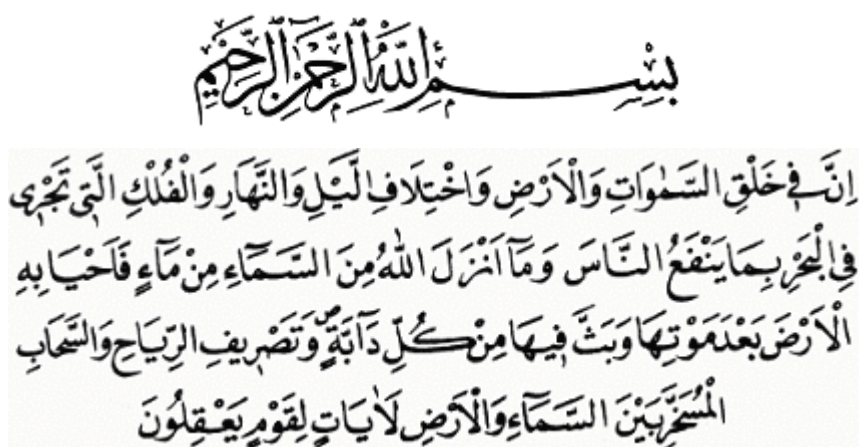 بِسْمِ اللَّهِ الرَّحْمَنِ الرَّحِيمِ
اِنَّ فِي خَلْقِ السَّمٰوَاتِ وَالْاَرْضِ وَاخْتِلَافِ الَّيْلِ وَالنَّهَارِ وَالْفُلْكِ الَّتِي تَجْرِي
فِي الْبَحْرِ بِمَا يَنْفَعُ النَّاسَ وَمَآ اَنْزَلَ اللّٰهُ مِنَ السَّمَآءِ مِنْ مَآءٍ فَاَحْيَا بِهِ
الْاَرْضَ بَعْدَ مَوْتِهَا وَبَثَّ فِيهَا مِنْ كُلِّ دَآبَّةٍۖ وَتَصْرِيفِ الرِّيَاحِ وَالسَّحَابِ
الْمُسَخَّرِ بَيْنَ السَّمَآءِ وَالْاَرْضِ لَاٰيَاتٍ لِقَوْمٍ يَعْقِلُونَ